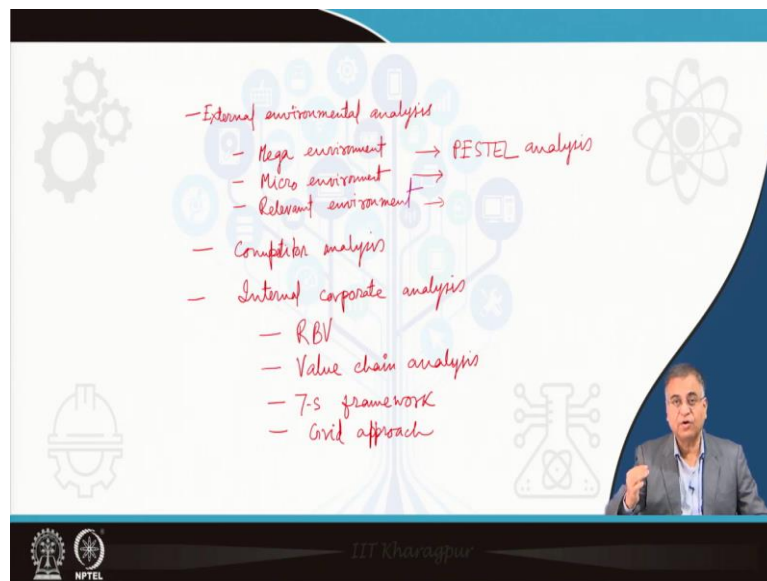 - External environmental analysis
- Mega environment → PESTEL analysis
- Micro environment →
- Relevant environment →
- Competitor analysis
- Internal corporate analysis
- RBV
- Value chain analysis
- 7-S framework
- approach
IIT Kharagpur
NPTEL